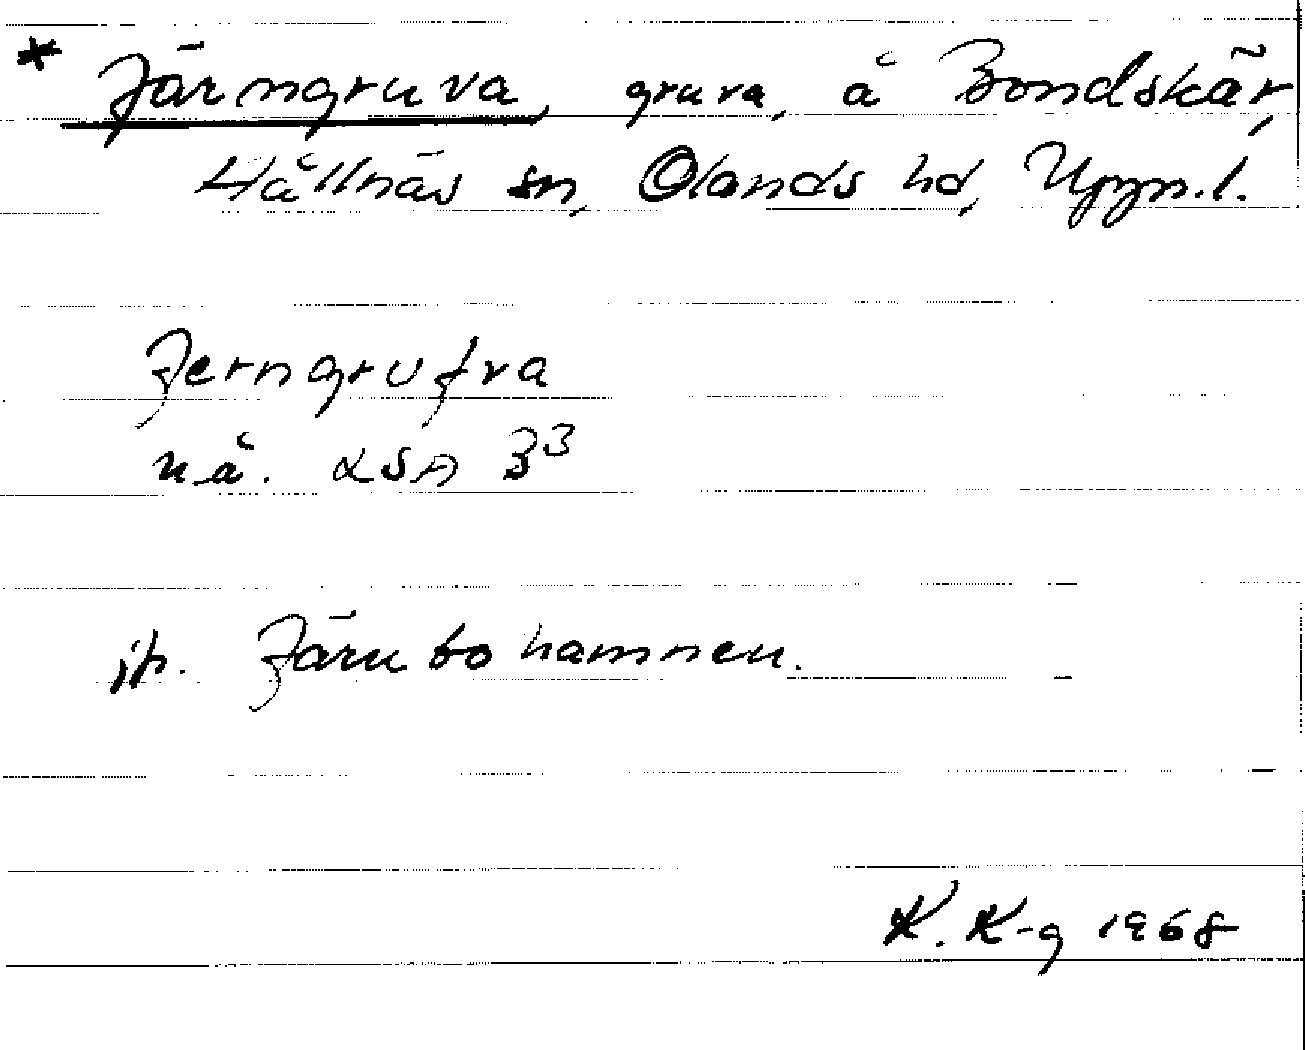 * Järngruva, gruva, å Bondskär,
Hållnäs sn, Olands hd, Uppl.
Jerngrufva
uå. LSA B3
jfr. Järnbohamnen.
K. K-g 1968